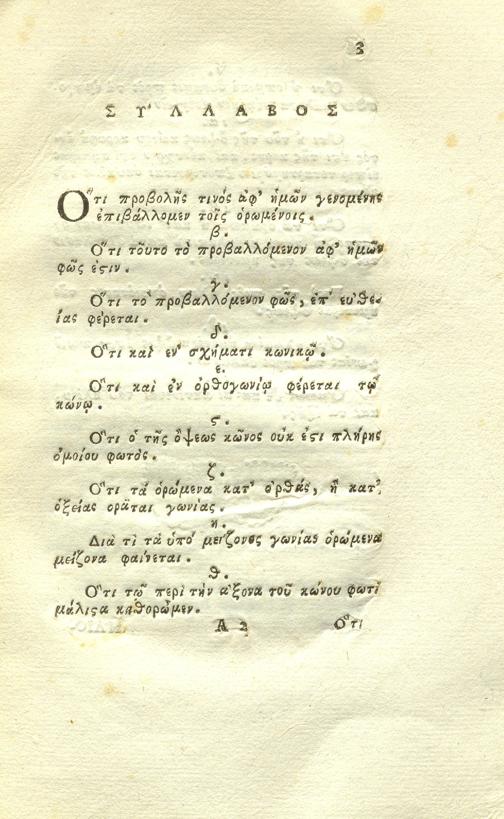 3
ΣΥ᾿ΛΛΑΒΟΣ
Ὅτι προβολῆς τινός ἀφ' ἡμῶν γενομένης
ἐπιβάλλομεν τοῖς ὁρωμένοις.
β.
Ὅτι τοῦτο τὸ προβαλλόμενον ἀφ' ἡμῶν
φῶς ἐϛιν.
γ.
Ὅτι τὸ προβαλλόμενον φῶς, ἐπ' εὐθε-
ίας φέρεται.
δ.
Ὅτι καὶ ἐν' σχήματι κωνικῷ.
ε.
Ὅτι καὶ ἐν ὀρθογωνίῳ φέρεται τῷ
κώνῳ.
ϛ.
Ὅτι ὁ τῆς ὄψεως κῶνος οὐκ ἐϛι πλήρης
ὁμοίου φωτὸς.
ζ.
Ὅτι τὰ ὁρώμενα κατ' ὀρθάς, ἢ κατ'
ὀξείας ὁρᾶται γωνίας.
η.
Διὰ τὶ τὰ ὑπὸ μείζονος γωνίας ὁρώμενα
μείζονα φαίνεται.
θ.
Ὅτι τῶ περὶ τὴν ἄξονα τοῦ κώνου φωτὶ
μάλιϛα καθορῶμεν.
A 2 Ὅτι